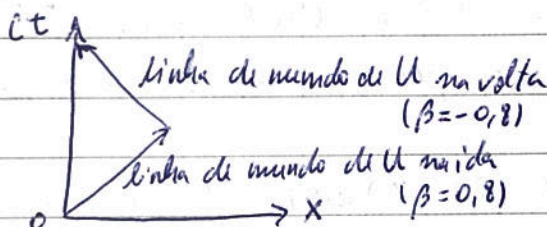 ct
linha de mundo de U na volta
(β=-0,8)
linha de mundo de U na ida
(β=0,8)
0
x